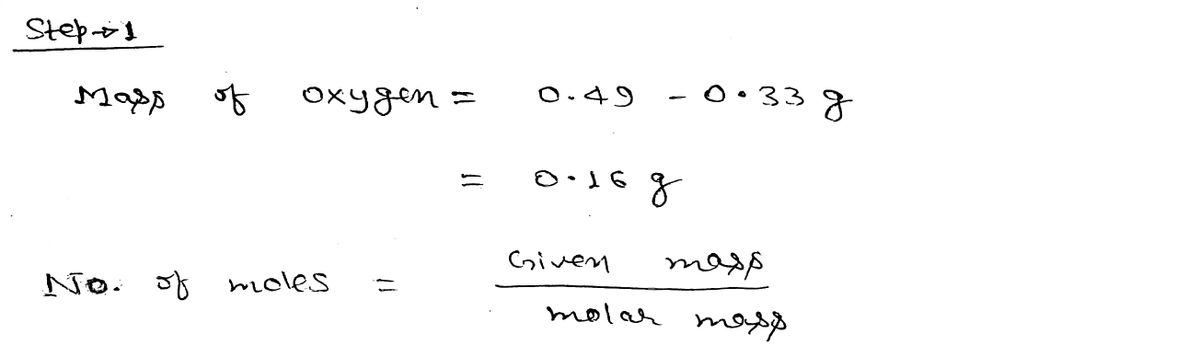 Step → 1
Mass of oxygen = 0.49 - 0.33 g
= 0.16 g
No. of moles = Given mass
molar mass